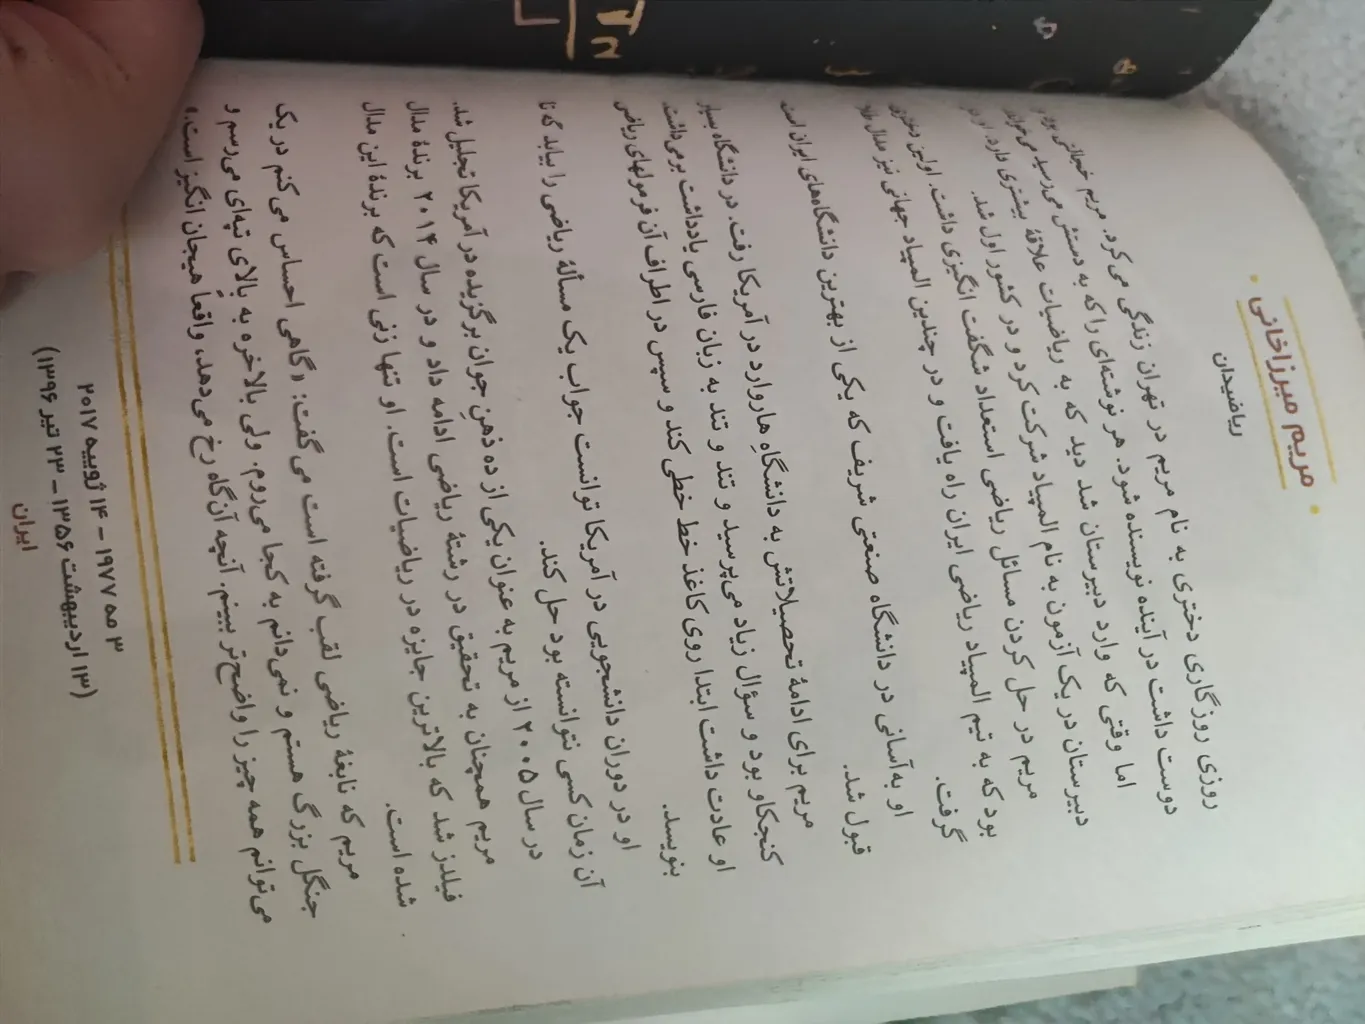 مریم میرزاخانی
ریاضیدان
روزی روزگاری دختری به نام مریم در تهران زندگی می‌کرد. مریم خیلی
دوست داشت در آینده نویسنده شود. هر نوشته‌ای را که به دستش می‌رسید می‌خواند
اما وقتی که وارد دبیرستان شد دید که به ریاضیات علاقهٔ بیشتری دارد. او در
دبیرستان در یک آزمون به نام المپیاد شرکت کرد و در کشور اول شد.
مریم در حل کردن مسائل ریاضی استعداد شگفت انگیزی داشت. اولین دختری
بود که به تیم المپیاد ریاضی ایران راه یافت و در چندین المپیاد جهانی نیز مدال طلا
گرفت.
او به آسانی در دانشگاه صنعتی شریف که یکی از بهترین دانشگاه‌های ایران است
قبول شد.
مریم برای ادامهٔ تحصیلاتش به دانشگاهِ هاروارد در آمریکا رفت. در دانشگاه بسیار
کنجکاو بود و سؤال زیاد می‌پرسید و تند و تند به زبان فارسی یادداشت برمی‌داشت.
او عادت داشت ابتدا روی کاغذ خط خطی کند و سپس در اطراف آن فرمولهای ریاضی
بنویسد.
او در دوران دانشجویی در آمریکا توانست جواب یک مسألهٔ ریاضی را بیابد که تا
آن زمان کسی نتوانسته بود حل کند.
در سال ۲۰۰۵ از مریم به عنوان یکی از ده ذهنِ جوان برگزیده در آمریکا تجلیل شد.
مریم همچنان به تحقیق در رشتهٔ ریاضی ادامه داد و در سال ۲۰۱۴ برندهٔ مدال
فیلدز شد که بالاترین جایزه در ریاضیات است. او تنها زنی است که برندهٔ این مدال
شده است.
مریم که نابغهٔ ریاضی لقب گرفته است می‌گفت: «گاهی احساس می‌کنم در یک
جنگل بزرگ هستم و نمی‌دانم به کجا می‌روم. ولی بالاخره به بالای تپه‌ای می‌رسم و
می‌توانم همه چیز را واضح‌تر ببینم. آنچه آن‌گاه رخ می‌دهد، واقعاً هیجان انگیز است.»
۳ مه ۱۹۷۷ – ۱۴ ژوییه ۲۰۱۷
(۱۳ اردیبهشت ۱۳۵۶ – ۲۳ تیر ۱۳۹۶)
ایران